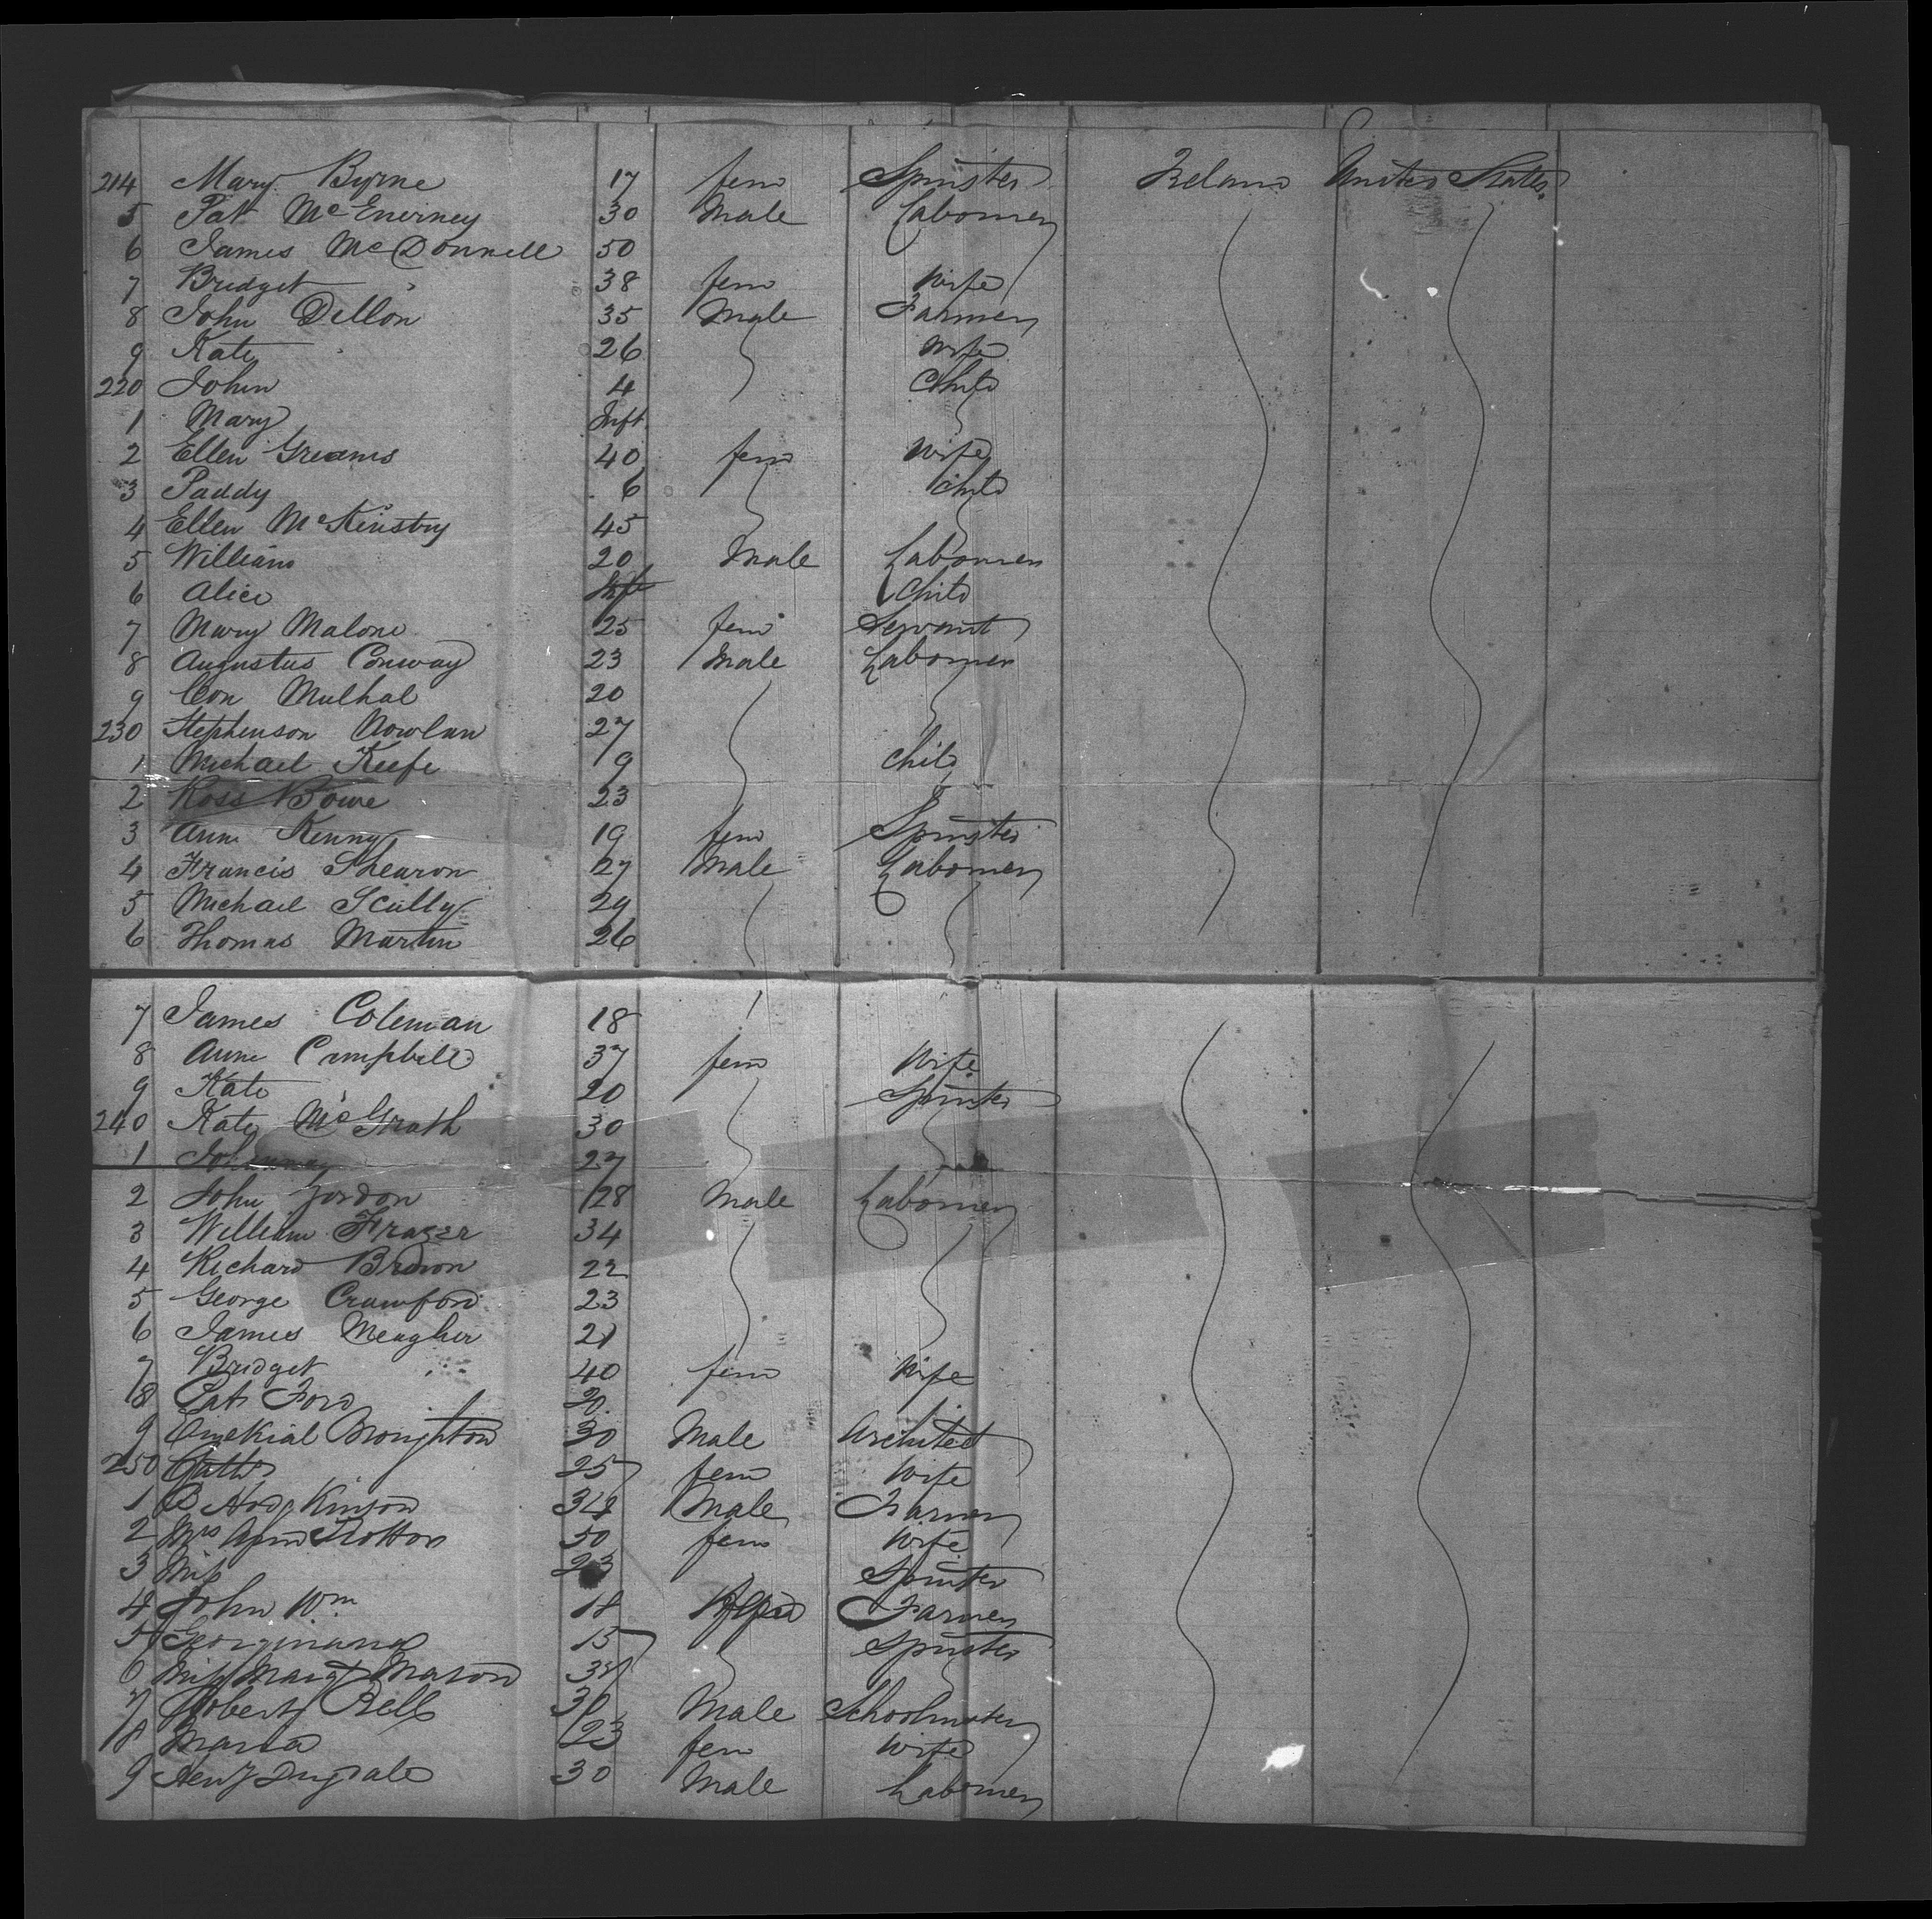 214 Mary Byrne 17 fem Spinster Ireland United States
5 Pat McEnerney 30 Male Labourer
6 James McDonnell 50
7 Bridget " 38 fem Wife
8 John Dillon 35 Male Farmer
9 Kate 26 Wife
220 John 4 Child
1 Mary Inft
2 Ellen Greams 40 fem Wife
3 Paddy 6 Child
4 Ellen McKinstry 45
5 William 20 Male Labourer
6 Alice Inft Child
7 Mary Malone 25 fem Servant
8 Augustus Conway 23 Male Labourer
9 Con Mulhal 20
230 Stephenson Nowlan 27
1 Michael Keefe 9 Child
2 Ross Bowe 23
3 Anne Kenny 19 fem Spinster
4 Francis Shearon 27 Male Labourer
5 Michael Scully 29
6 Thomas Martin 26
7 James Coleman 18
8 Anne Campbell 37 fem Wife
9 Kate 20 Spinster
240 Kate McGrath 30
1 Johanna 27
2 John Jordon 28 Male Labourer
3 William Frazer 34
4 Richard Brown 22
5 George Crawford 23
6 James Meagher 21
7 Bridget 40 fem Wife
8 Pat Ford 20
9 Broughton 30 Male Architect
250 Cath 25 fem Wife
1 B Hodgkinson 34 Male Farmer
2 Mrs Ann 50 fem Wife
3 Miss 23 Spinster
4 John Wm 18 Farmer
5 Georginana 15 Spinster
6 Miss Margt Mason
7 Robert Bell 30 Male Schoolmaster
8 Maria 23 fem Wife
9 Heny Dugdale 30 Male Labourer